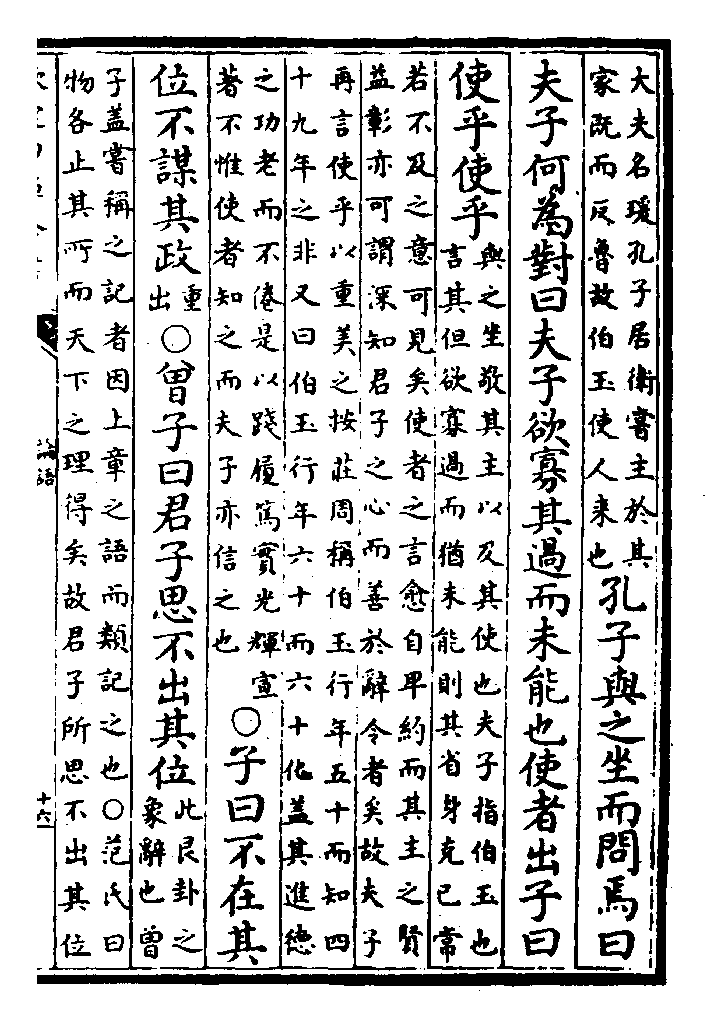 大夫名瑗孔子居衛嘗主於其
家既而反魯故伯玉使人来也
孔子與之坐而問焉曰
夫子何為對曰夫子欲寡其過而未能也使者出子曰
使乎使乎
與之坐敬其主以及其使也夫子指伯玉也
言其但欲寡過而猶未能則其省身克已常
若不及之意可見矣使者之言愈自卑約而其主之賢
益彰亦可謂深知君子之心而善於辭令者矣故夫子
再言使乎以重美之按莊周稱伯玉行年五十而知四
十九年之非又曰伯玉行年六十而六十化盖其進德
之功老而不倦是以踐履篤實光輝宣
著不惟使者知之而夫子亦信之也
○子曰不在其
位不謀其政
重
出
○曾子曰君子思不出其位
此艮卦之
象辭也曾
子盖嘗稱之記者因上章之語而類記之也○范氏曰
物各止其所而天下之理得矣故君子所思不出其位
論語
十六